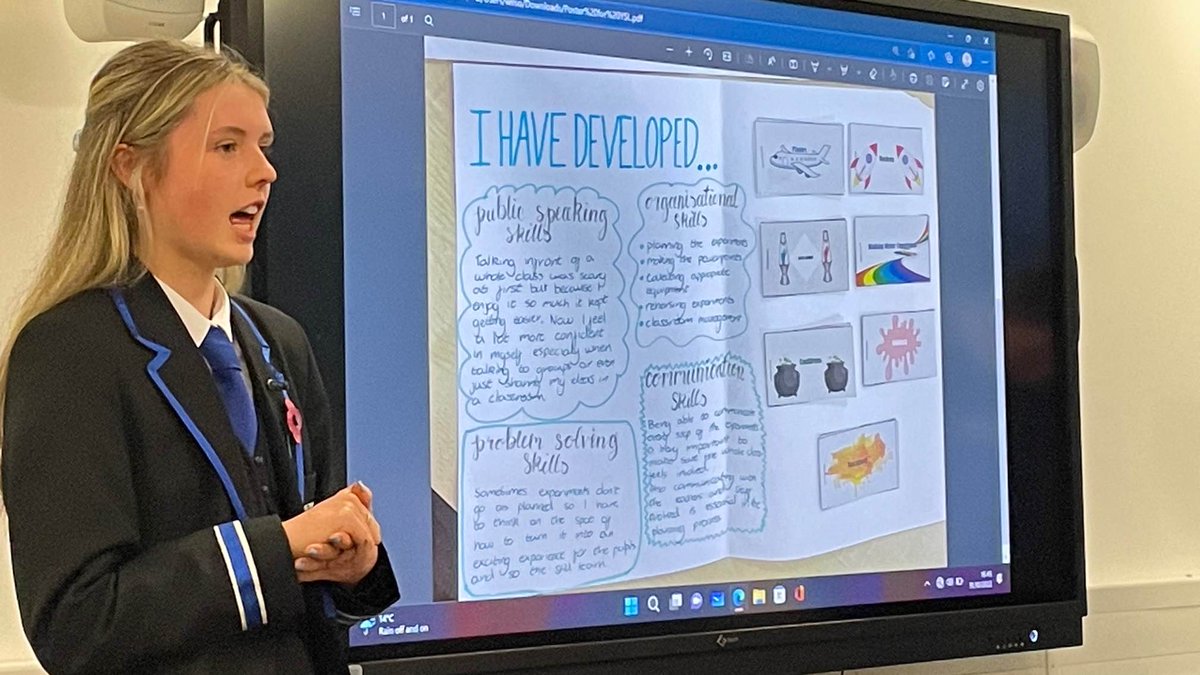 Downloads/Poster%20for%20YSL.pdf
1 of 1
I HAVE DEVELOPED...
public speaking
skills
Talking infront of a
whole class was scary
at first but because I
enjoy it so much it kept
getting easier. Now I feel
a lot more confident
in myself especially when
talking to groups or even
just sharing my ideas in
a classroom.
organisational
skills
• planning the experiments
• making the powerpoints
• collecting appropriate
equipment
• rehersing experiments
• classroom management
problem solving
skills
Sometimes experiments don't
go as planned so I have
to think on the spot of
how to turn it into an
exciting experience for the pupils
and so the still learn.
communication
skills
Being able to communicate
every step of the experiments
is important to
make sure the whole class
feels involved.
Also communicating with
the teachers and
involved is essential in the
planning process.
Planes
Rockets
14°C
Rain off and on